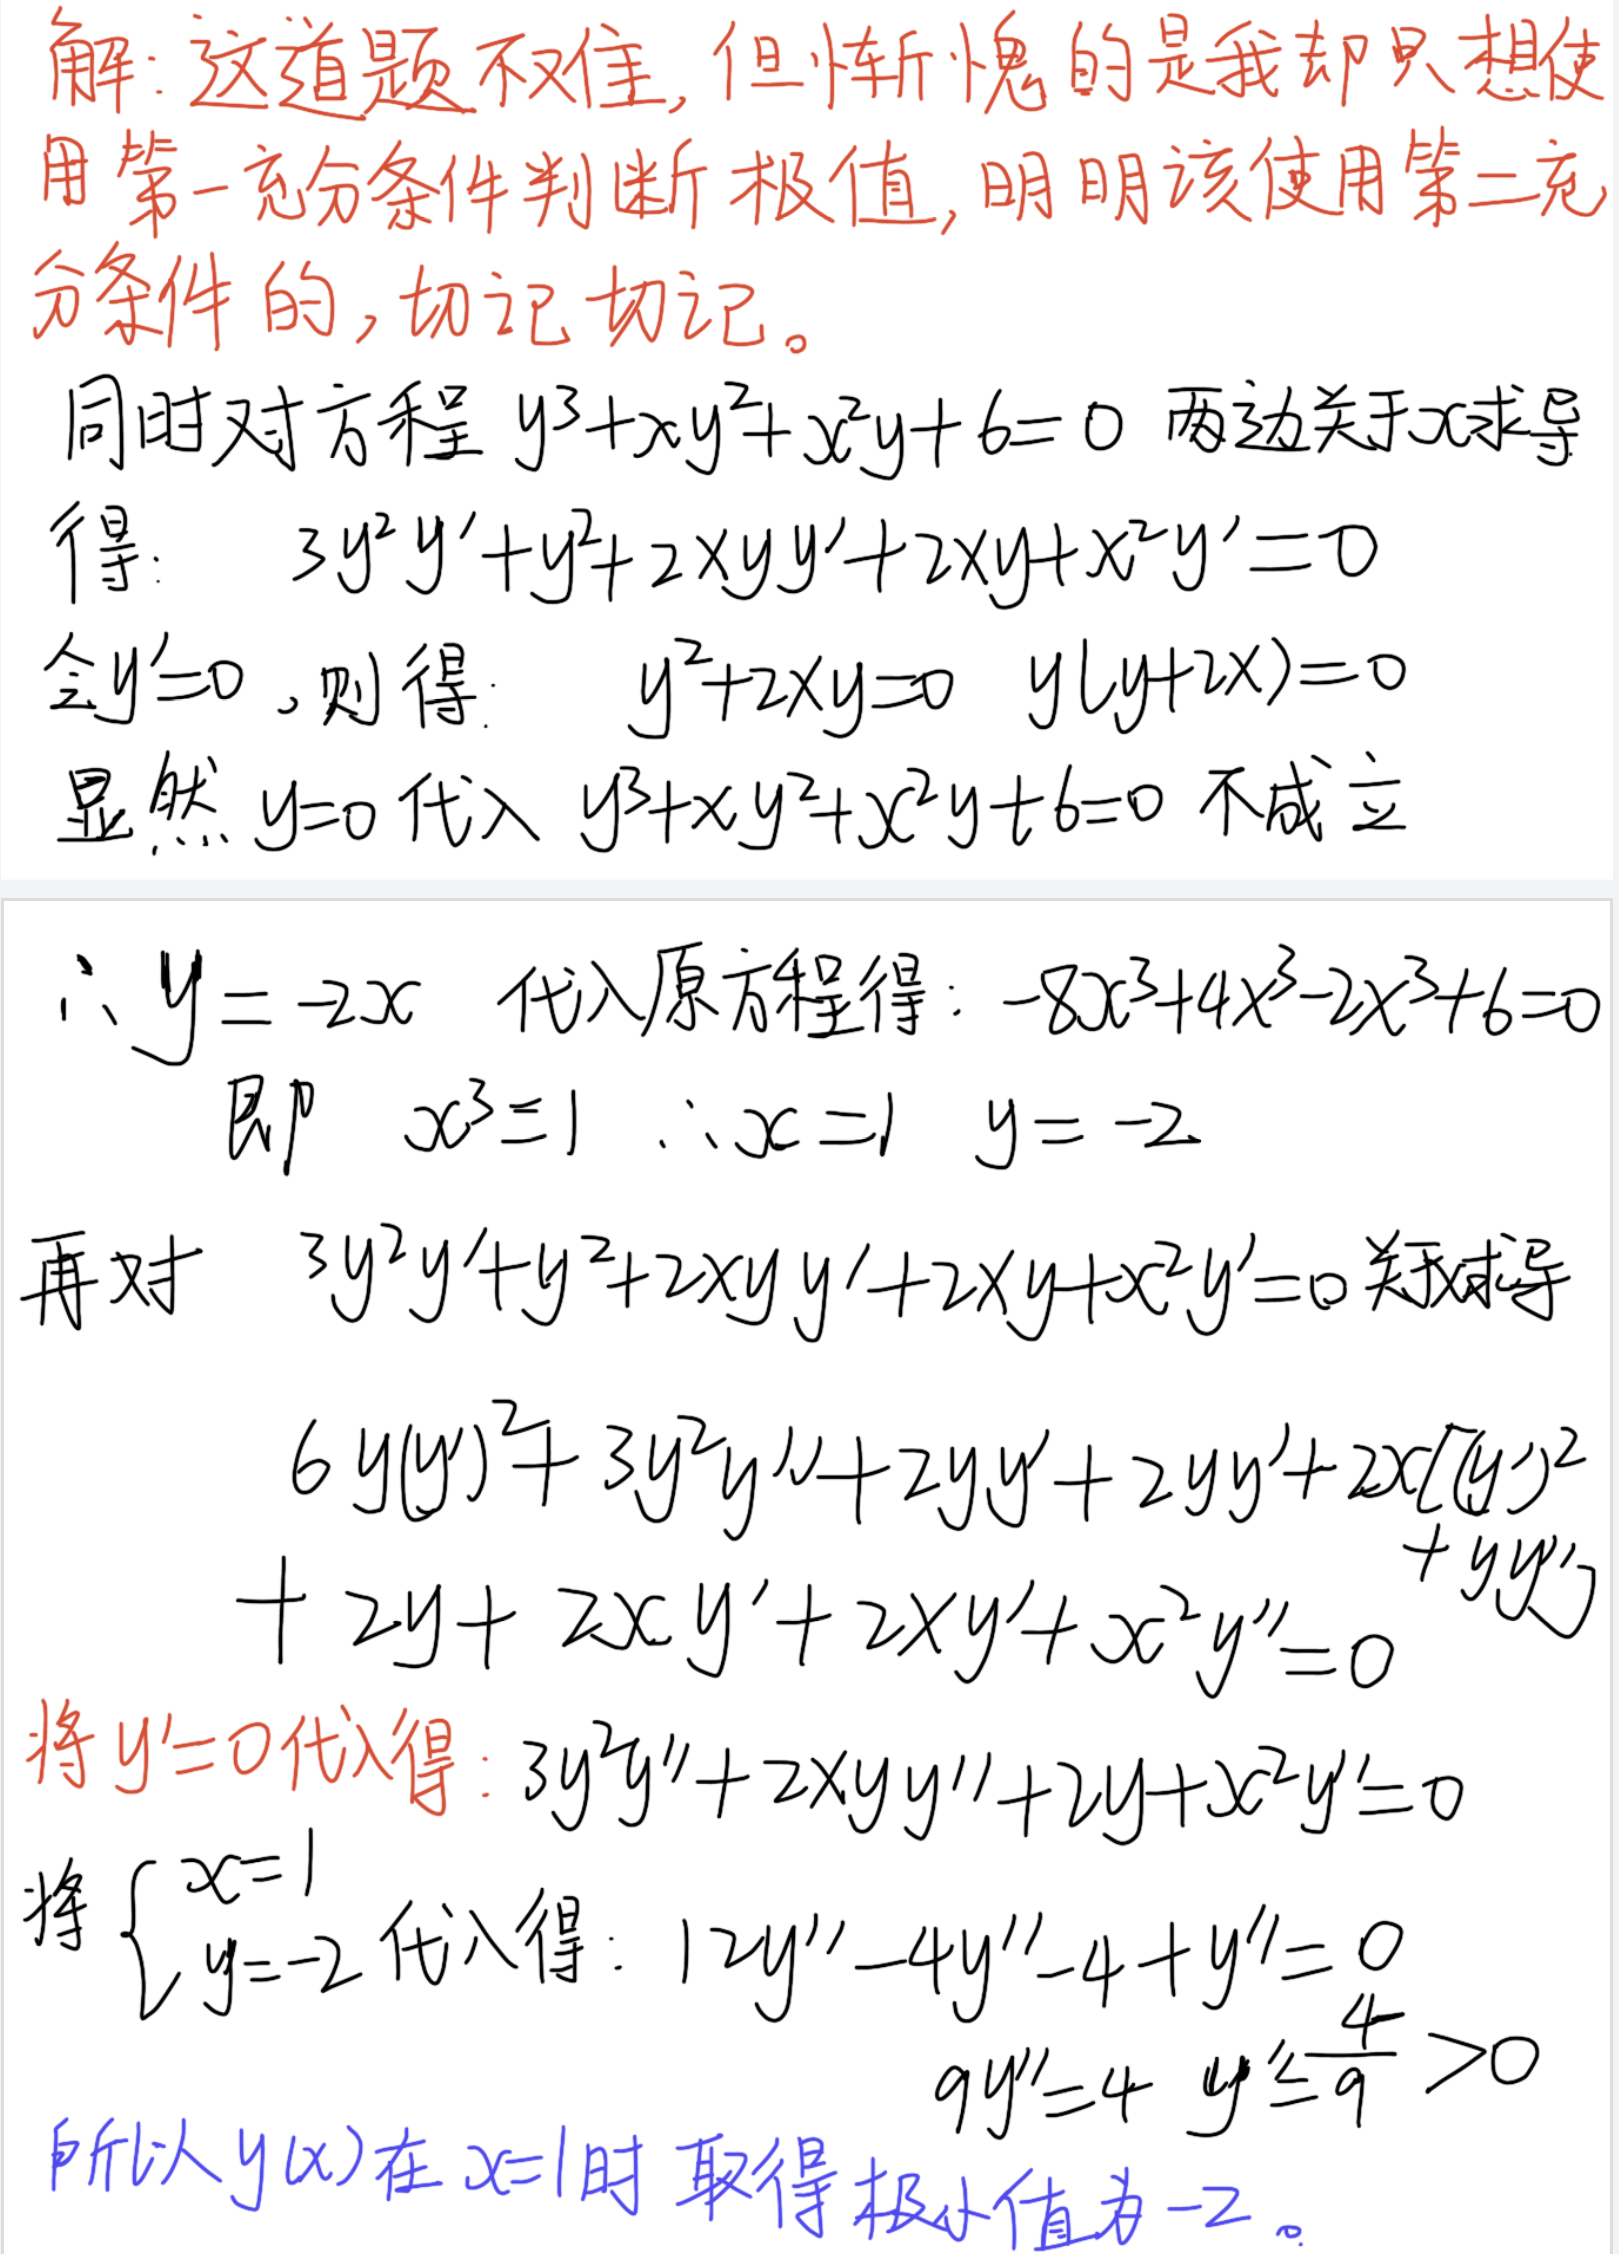 解：这道题不难，但惭愧的是我却只想使
用第一充分条件判断极值，明明该使用第二充
分条件的，切记切记。
同时对方程 y³+xy²+x²y+6=0 两边关于x求导
得： 3y²y′+y²+2xyy′+2xy+x²y′=0
令y′=0，则得： y²+2xy=0 y(y+2x)=0
显然 y=0 代入 y³+xy²+x²y+6=0 不成立
∴ y=-2x 代入原方程得：-8x³+4x³-2x³+6=0
即 x³=1 ∴x=1 y=-2
再对 3y²y′+y²+2xyy′+2xy+x²y′=0 关于x求导
6y(y′)²+3y²y″+2yy′+2yy′+2x[(y′)²
+yy″]
+2y+2xy′+2xy′+x²y″=0
将y′=0代入得：3y²y″+2xyy″+2y+x²y″=0
将{x=1
y=-2 代入得：12y″-4y″-4+y″=0
9y″=4 y″=4/9>0
所以y(x)在x=1时取得极小值为-2。